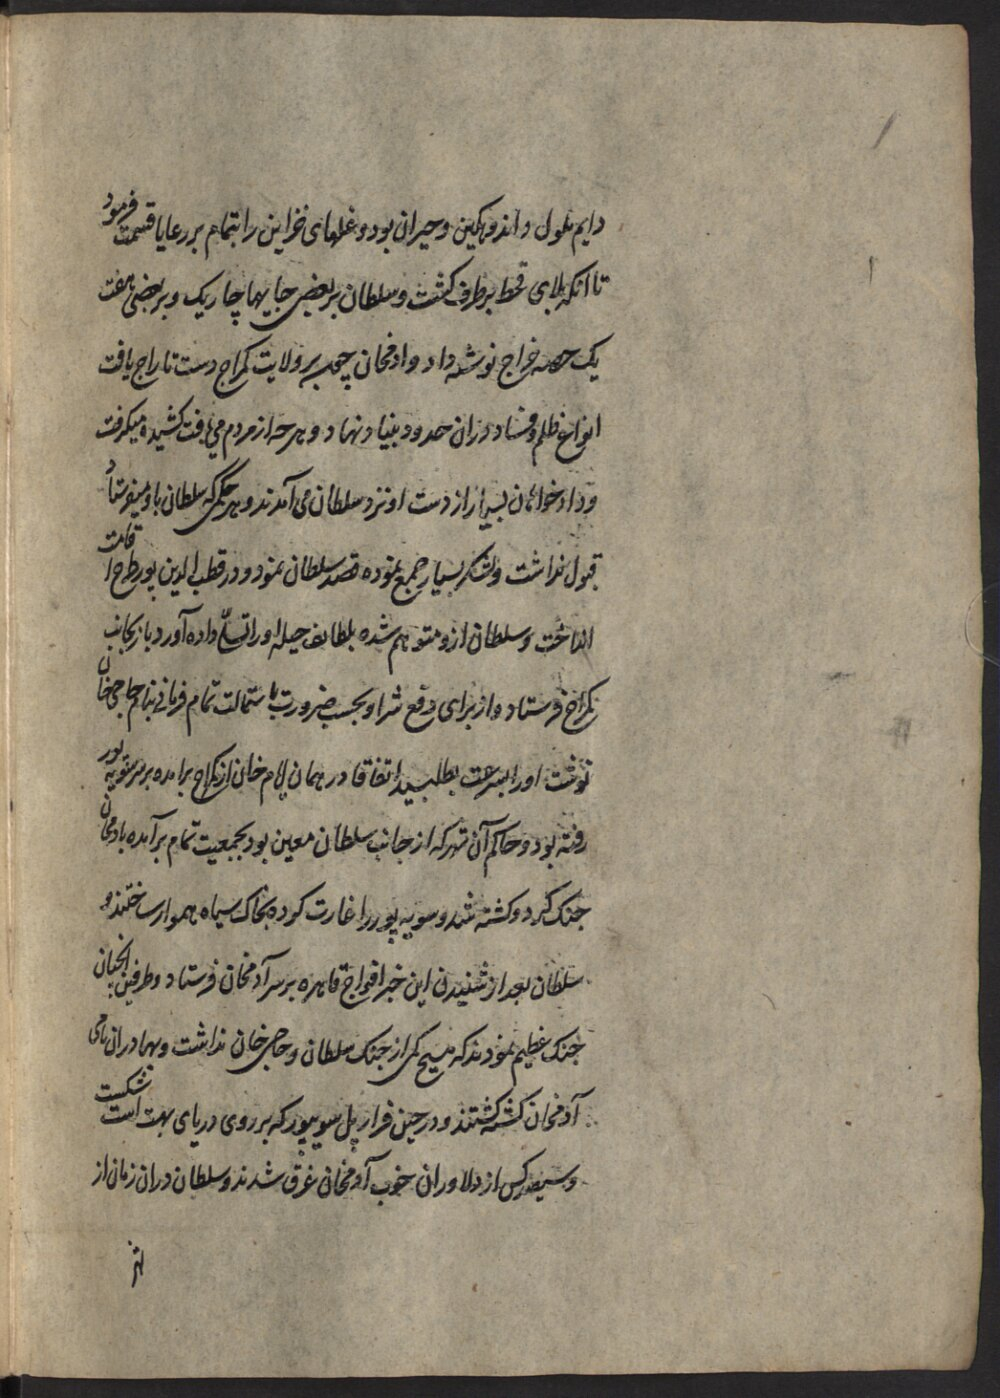 دایم ملول و اندوهکین و حیران بود و غلهای خزاین را بتمام بر رعایا قسمت فرمود
تا انکه بلای قحط برطرف کشت و سلطان بر بعضی جایها چاریک و بر بعضی هفت
یک حصه خراج نوشته داد و ادمخان چون بر ولایت کمراج دست تاراج یافت
انواع ظلم و فساد دران حدود بنیاد نهاد و هرچه از مردم می یافت کشیده میکرفت
و دادخواهان بسیار از دست او نزد سلطان می آمدند و هر حکمی که سلطان باو میفرستاد
قبول نداشت و لشکر بسیار جمع نموده قصد سلطان نمود و در قطب الدین پور طرح اقامت
انداخت و سلطان ازو متوهم شده بلطایف حیله اورا تسلّی داده آورد باز بجانب
کمراج فرستاد و از برای دفع شر او بحسب ضرورت باستمالت تمام فرمانی بنام حاجی خان
نوشت اورا بسرعت بطلبید اتفاقا در همان ایام خان از کمراج برامده بر سر سویه پور
رفته بود و حاکم آن شهر که از جانب سلطان معین بود بجمعیت تمام برآمده بادمخان
جنک کرد و کشته شد و سویه پور را غارت کرده بخاک سیاه هموار ساختند و
سلطان بعد از شنیدن این خبر افواج قاهره بر سر آدمخان فرستاد و طرفین انچنان
جنک عظیم نمودند که هیچ کمی از جنک سلطان و حاجی خان نداشت و بهادران نامی
آدمخان کشته کشتند و در حین فرار پل سویپور که بر روی دریای بهت است شکست
و سیصد کس از دلاوران خوب آدمخان غرق شدند و سلطان دران زمان از